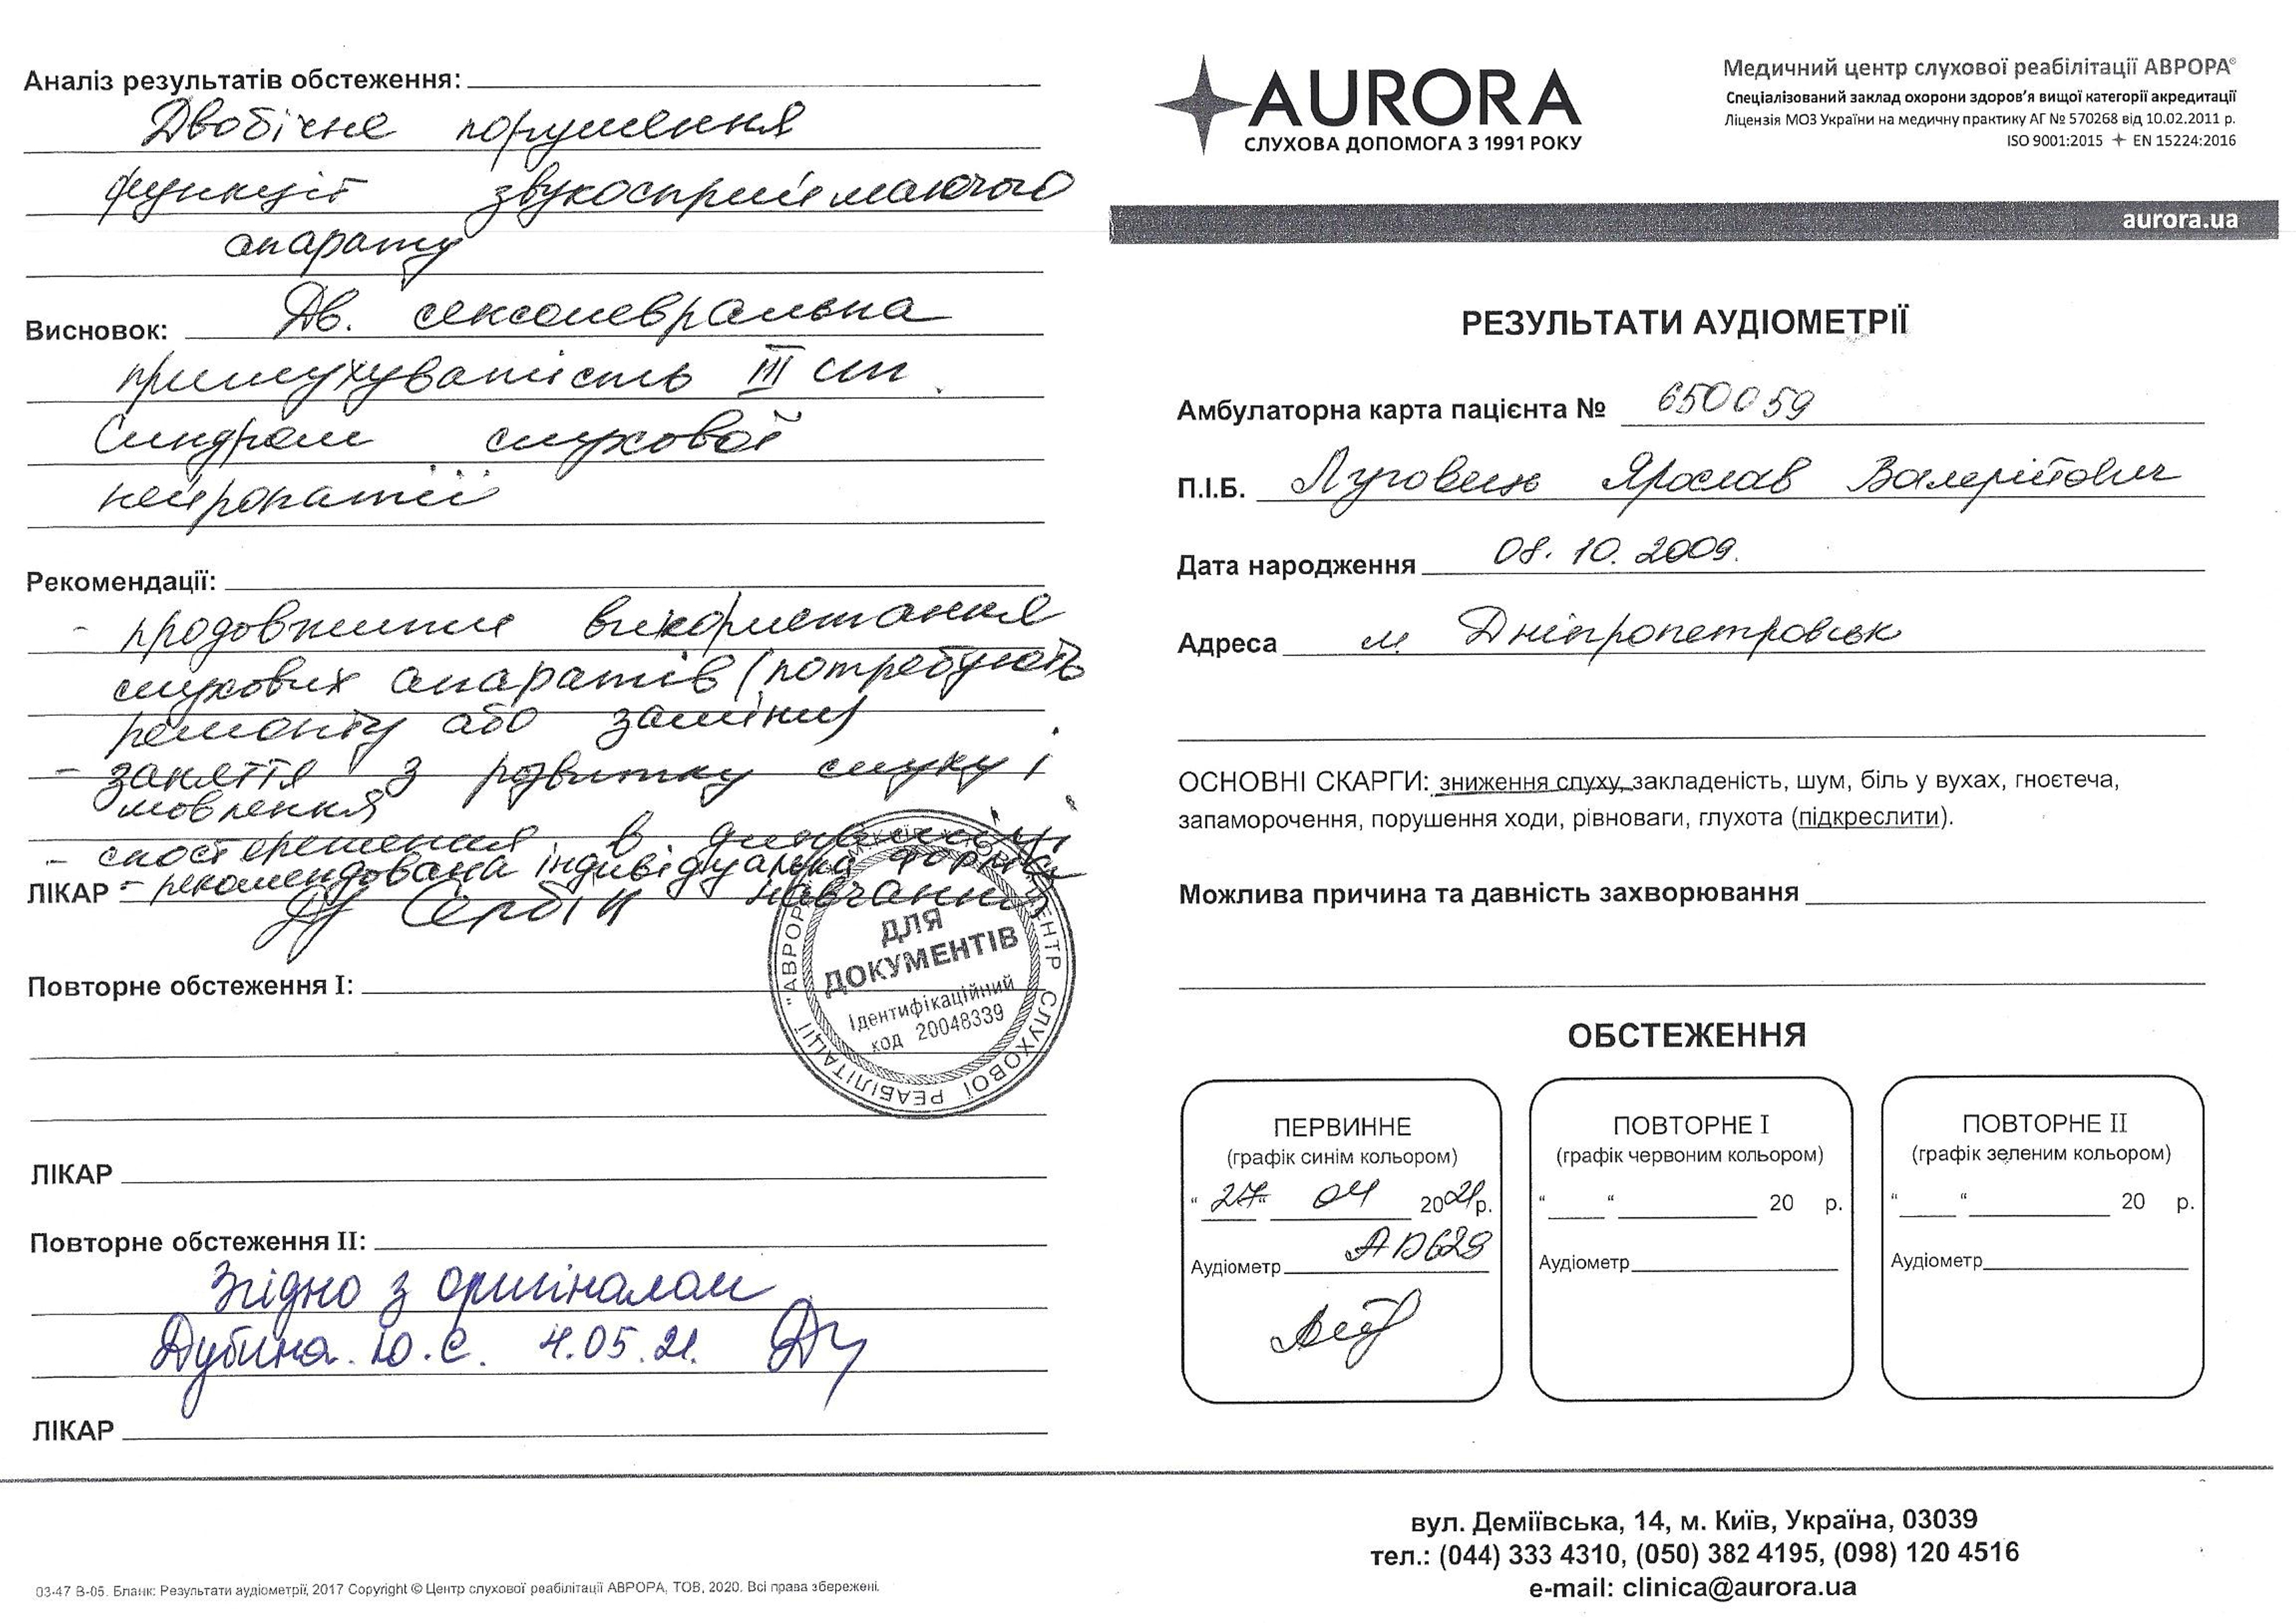 Аналіз результатів обстеження:
Двобічне порушення
функції звукосприймаючого
апарату
Висновок: Дв. сенсоневральна
приглухуватість III ст.
Синдром слухової
нейропатії
Рекомендації:
- продовжити використання
слухових апаратів (потребують
ремонту або заміни)
- заняття з розвитку слуху і
мовлення
- спостереження в динаміці
- рекомендована індивідуальна форма
навчання
ЛІКАР Сербін
ДЛЯ
ДОКУМЕНТІВ
Ідентифікаційний
код 20048339
"АВРОРА" ЦЕНТР СЛУХОВОЇ РЕАБІЛІТАЦІЇ
Повторне обстеження I:
ЛІКАР
Повторне обстеження II:
Згідно з оригіналом
Дубина Ю.С. 4.05.21.
ЛІКАР
03-47 В-05. Бланк: Результати аудіометрії, 2017 Copyright © Центр слухової реабілітації АВРОРА, ТОВ, 2020. Всі права збережені.
AURORA
СЛУХОВА ДОПОМОГА З 1991 РОКУ
Медичний центр слухової реабілітації АВРОРА®
Спеціалізований заклад охорони здоров'я вищої категорії акредитації
Ліцензія МОЗ України на медичну практику АГ № 570268 від 10.02.2011 р.
ISO 9001:2015 EN 15224:2016
aurora.ua
РЕЗУЛЬТАТИ АУДІОМЕТРІЇ
Амбулаторна карта пацієнта № 650059
П.І.Б. Луговець Ярослав Валерійович
Дата народження 08.10.2009.
Адреса м. Дніпропетровськ
ОСНОВНІ СКАРГИ: зниження слуху, закладеність, шум, біль у вухах, гноєтеча,
запаморочення, порушення ходи, рівноваги, глухота (підкреслити).
Можлива причина та давність захворювання
ОБСТЕЖЕННЯ
ПЕРВИННЕ
(графік синім кольором)
"27" 04 2021р.
Аудіометр AD629
ПОВТОРНЕ I
(графік червоним кольором)
" " 20 р.
Аудіометр
ПОВТОРНЕ II
(графік зеленим кольором)
" " 20 р.
Аудіометр
вул. Деміївська, 14, м. Київ, Україна, 03039
тел.: (044) 333 4310, (050) 382 4195, (098) 120 4516
e-mail: clinica@aurora.ua